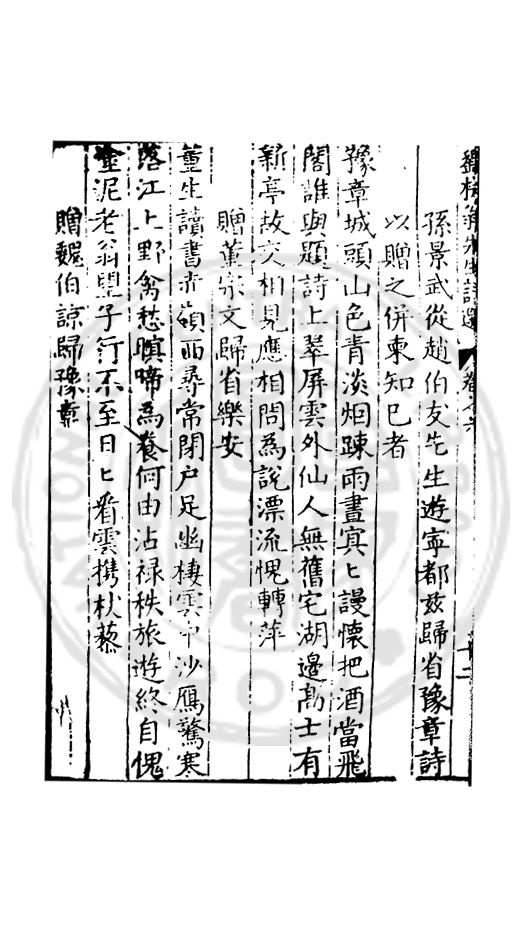 孫景武從趙伯友先生遊寧都兹歸省豫章詩
以贈之併柬知己者
豫章城頭山色青淡烟踈雨晝㝠〻謾懷把酒當飛
閣誰與題詩上翠屏雲外仙人無舊宅湖邊髙士有
新亭故交相見應相問為說漂流愧轉萍
贈董宗文歸省樂安
董生讀書赤嶺西尋常閉户足幽棲雲中沙鴈驚寒
落江上野禽愁暝啼為養何由沾禄秩旅遊終自愧
塗泥老翁望子行不至日〻看雲携杖藜
贈魏伯諒歸豫章